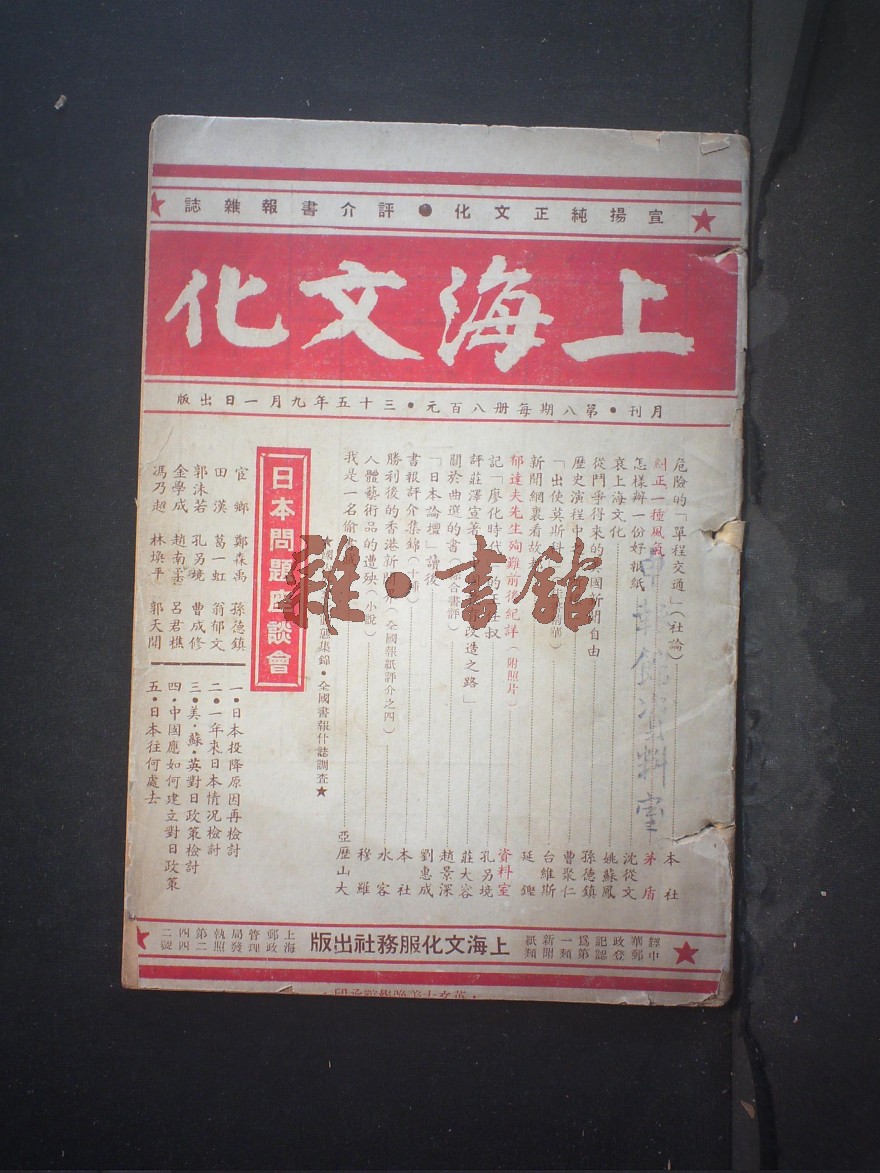 宣揚純正文化●評介書報雜誌
上海文化
月刊・第八期每冊八百元・三十五年九月一日出版
危險的「單程交通」(社論) 本社
糾正一種風氣 茅盾
怎樣辦一份好報紙 沈從文
哀上海文化 姚蘇鳳
從鬥爭得來的 國新聞自由 孫德鎮
歷史演程中 曹聚仁
「出使莫斯 台維斯
新聞網裏看故 延鏗
郁達夫先生殉難前後紀詳(附照片) 資料室
記「廖化時代」的王任叔 孔另境
評莊澤宣著 改造之路」 莊大容
關於曲選的書(綜合書評) 趙景深
「日本論壇」讀後 劉惠成
書報評介集錦(十 本社
勝利後的香港新聞 (全國報紙評介之四) 水客
人體藝術品的遭殃(小說) 穆羅
我是一名偷 亞歷山大
集錦・全國書報什誌調查★
日本問題座談會
宦鄉 鄭森禹 孫德鎮
田漢 葛一虹 翁郁文
郭沫若 孔另境 曹成修
金學成 趙南柔 呂君樵
馮乃超 林煥平 郭天聞
一・日本投降原因再檢討
二・一年來日本情況檢討
三・美・蘇・英對日政策檢討
四・中國應如何建立對日政策
五・日本往何處去
申報館資料室
經中華郵政登記認為第一類新聞紙類
上海文化服務社出版
上海郵政管理局發執照第二四四二號
雜・書館